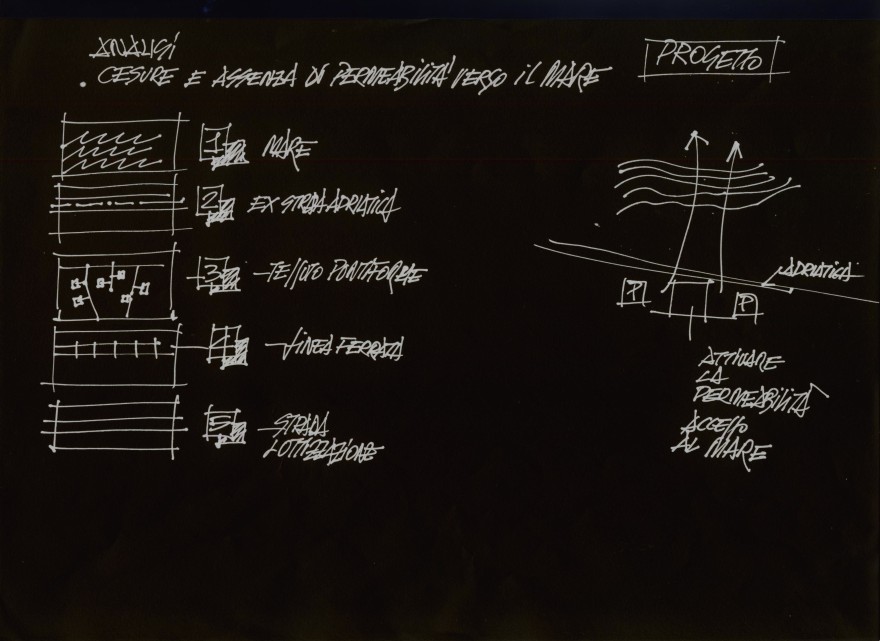 ANALISI
• CESURE E ASSENZA DI PERMEABILITA' VERSO IL MARE
PROGETTO
1 MARE
2 EX STRADA ADRIATICA
3 - TESSUTO PUNTIFORME
4 - LINEA FERRATA
5 - STRADA
LOTTIZZAZIONE
ADRIATICA
P
P
ATTIVARE
LA
PERMEABILITÀ
ACCESSO
AL MARE